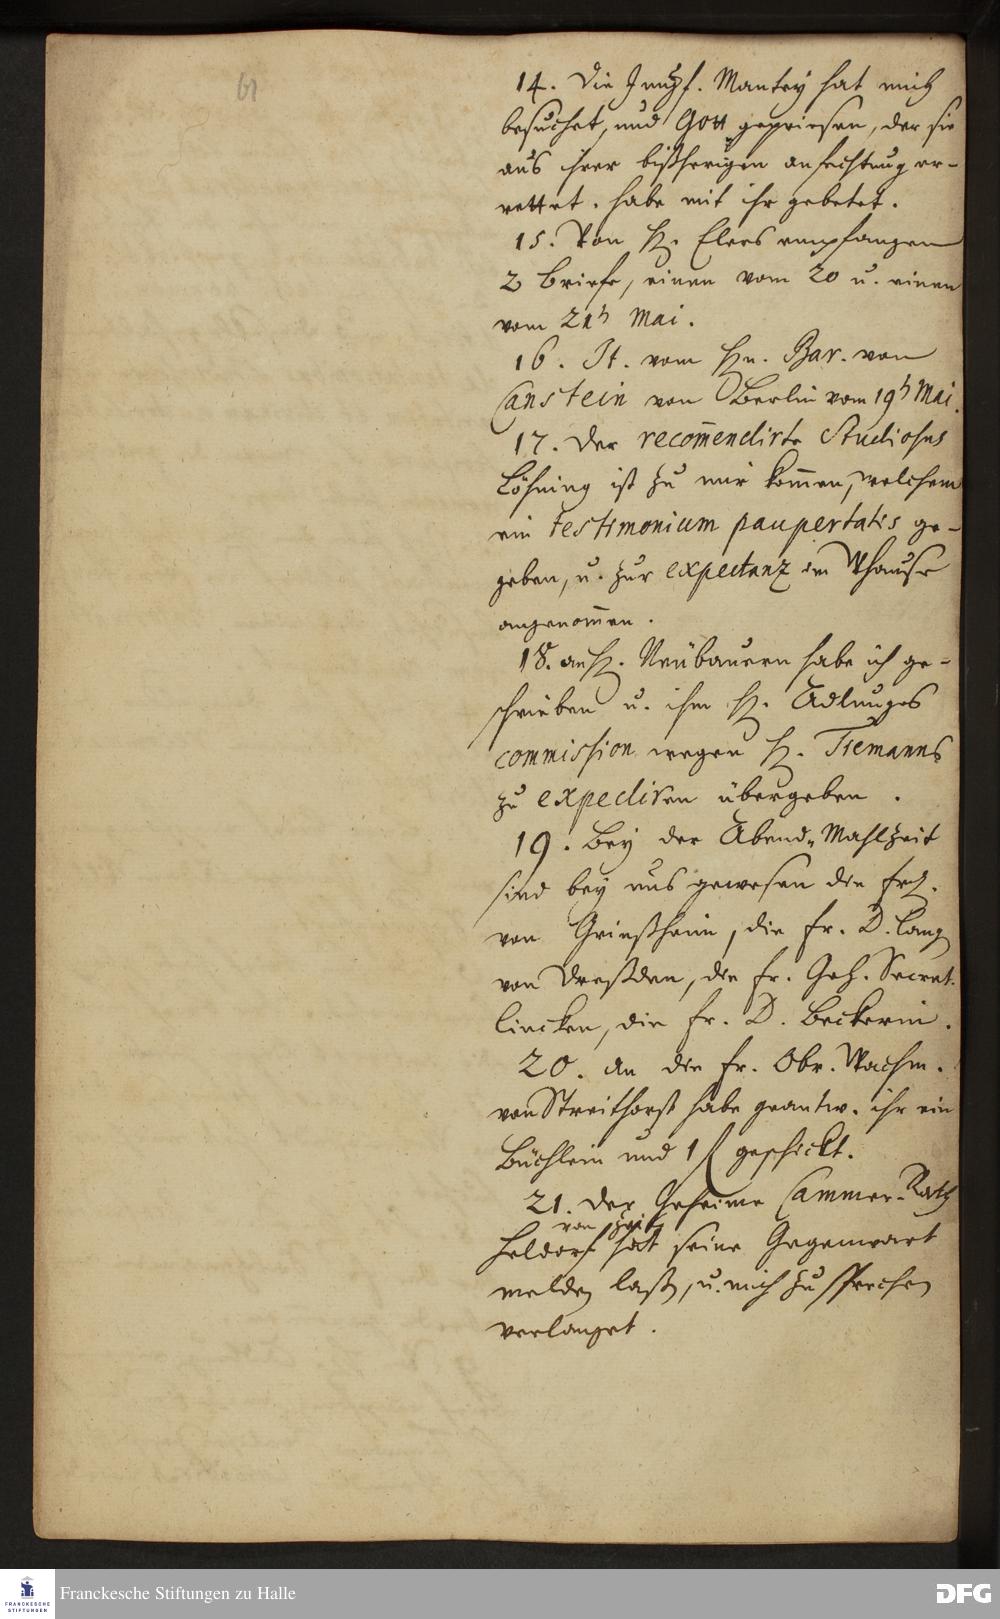 61
14. Die Jungf. Mantey hat mich
besuchet, und Gott gepriesen, der sie
aus ihrer bißherigen anfechtung er-
rettet. habe mit ihr gebetet.
15. Von H. Elers empfangen
2 Briefe, einen vom 20 u. einen
vom 21ten Mai.
16. It. vom Hn. Bar. von
Canstein von Berlin vom 19ten Mai.
17. Der recom̄endirte Studiosus
Löhning ist zu mir kom̄en, welchem
ein testimonium paupertatis ge-
geben, u. zur expectanz im Whause
angenom̄en.
18. an H. Neubauern habe ich ge-
schrieben u. ihm H. Adlunges
commission wegen H. Tiemanns
zu expediren übergeben.
19. Bey der Abend-Mahlzeit
sind bey uns gewesen die Fr.
von Grießheim, die Fr. D. Lang
von Dreßden, die Fr. Geh. Secret.
Lincken, die Fr. D. Beckerin.
20. An die Fr. Obr. Wachm.
von Streithorst habe geantw. ihr ein
Büchlein und 1 geschickt.
21. Der Geheime Cammer-Rath
von Zeitz
Heldorf hat seine Gegenwart
melden laßen, u. mich zu sprechen
verlanget.
Franckesche Stiftungen zu Halle
FRANCKESCHE
STIFTUNGEN
DFG